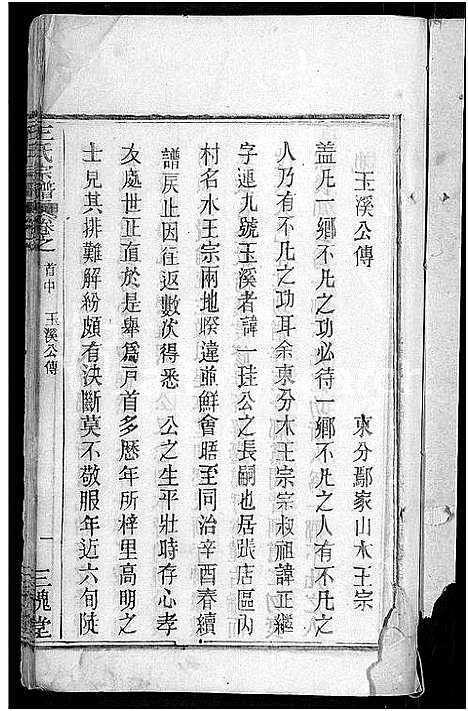 玉溪公傳
東分鄢家山水王宗
蓋凡一鄉不凡之功必待一鄉不凡之人有不凡之
人乃有不凡之功耳余東分木王宗宗叔祖諱正繼
字連九號玉溪者諱一珪公之長嗣也居張店區內
村名水王宗兩地暌違並鮮會晤至同治辛酉春續
譜戾止因在返數次得悉　公之生平壯時存心孝
友處世正直於是舉爲戸首多歴年所梓里高明之
士見其排難解紛頗有決斷莫不敬服年近六旬陡
王氏宗譜
卷之
首中
玉溪公傳
一
三槐堂